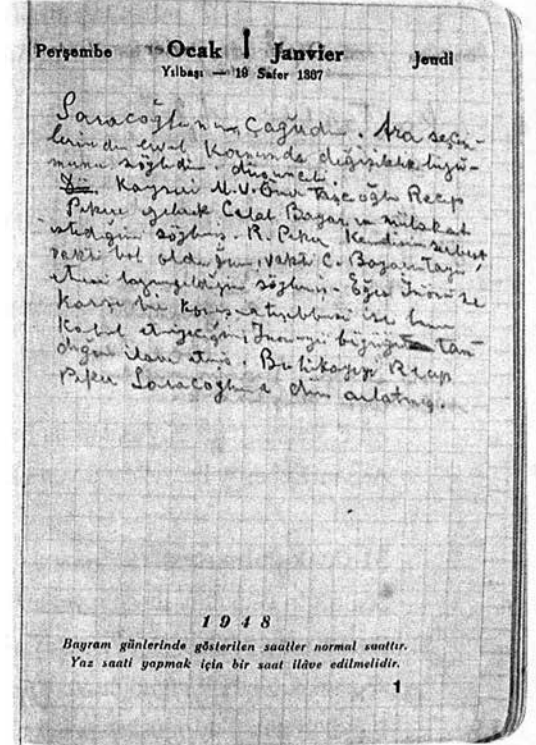 Perşembe Ocak 1 Janvier Jeudi
Yılbaşı — 19 Safer 1367
Saracoğlunun çağırdı. Ara seçim-
lerinden evvel değişiklik lüzu-
munu söyledi. düşünceli.
Kayseri M.V. Ömer Taşçıoğlu Recep
Pekere gelerek Celal Bayar'ın mülakat
istediğini söylemiş. R. Peker kendisinin serbest,
vakti bol olduğunu, vakti C. Bayarın tayin
etmesi lazımgeldiğini söylemiş. Eğer İnönü'ne
karşı bir teşebbüsü ise bunu
kabul etmiyeceğini, İnönüyü büyüğü tan-
dığını ilave etmiş. Bu hikayeyi Recep
Peker Saracoğluna dün anlatmış.
1948
Bayram günlerinde gösterilen saatler normal saattır.
Yaz saati yapmak için bir saat ilâve edilmelidir.
1